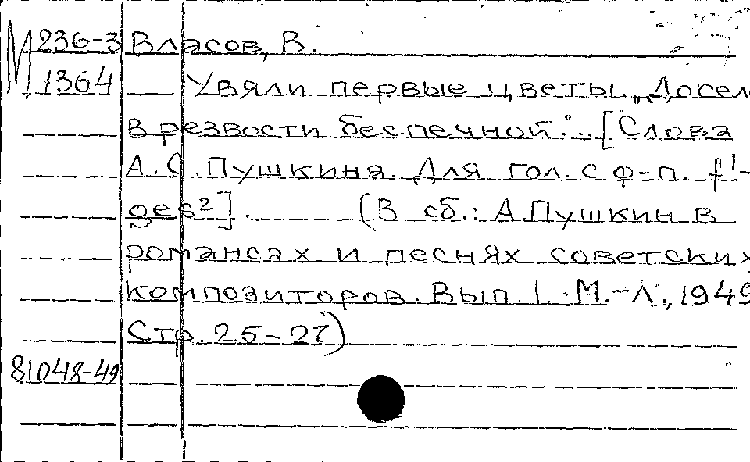 М 236-3 Власов, В.
1364 Увяли первые цветы. „Досель
в резвости беспечной". [Слова
А.С. Пушкина. Для гол. с ф-п. f¹-
ges²]. (В сб.: А Пушкин в
романсах и песнях советских
композиторов. Вып. 1. М.-Л., 1949
Стр. 25-27)
81048-49